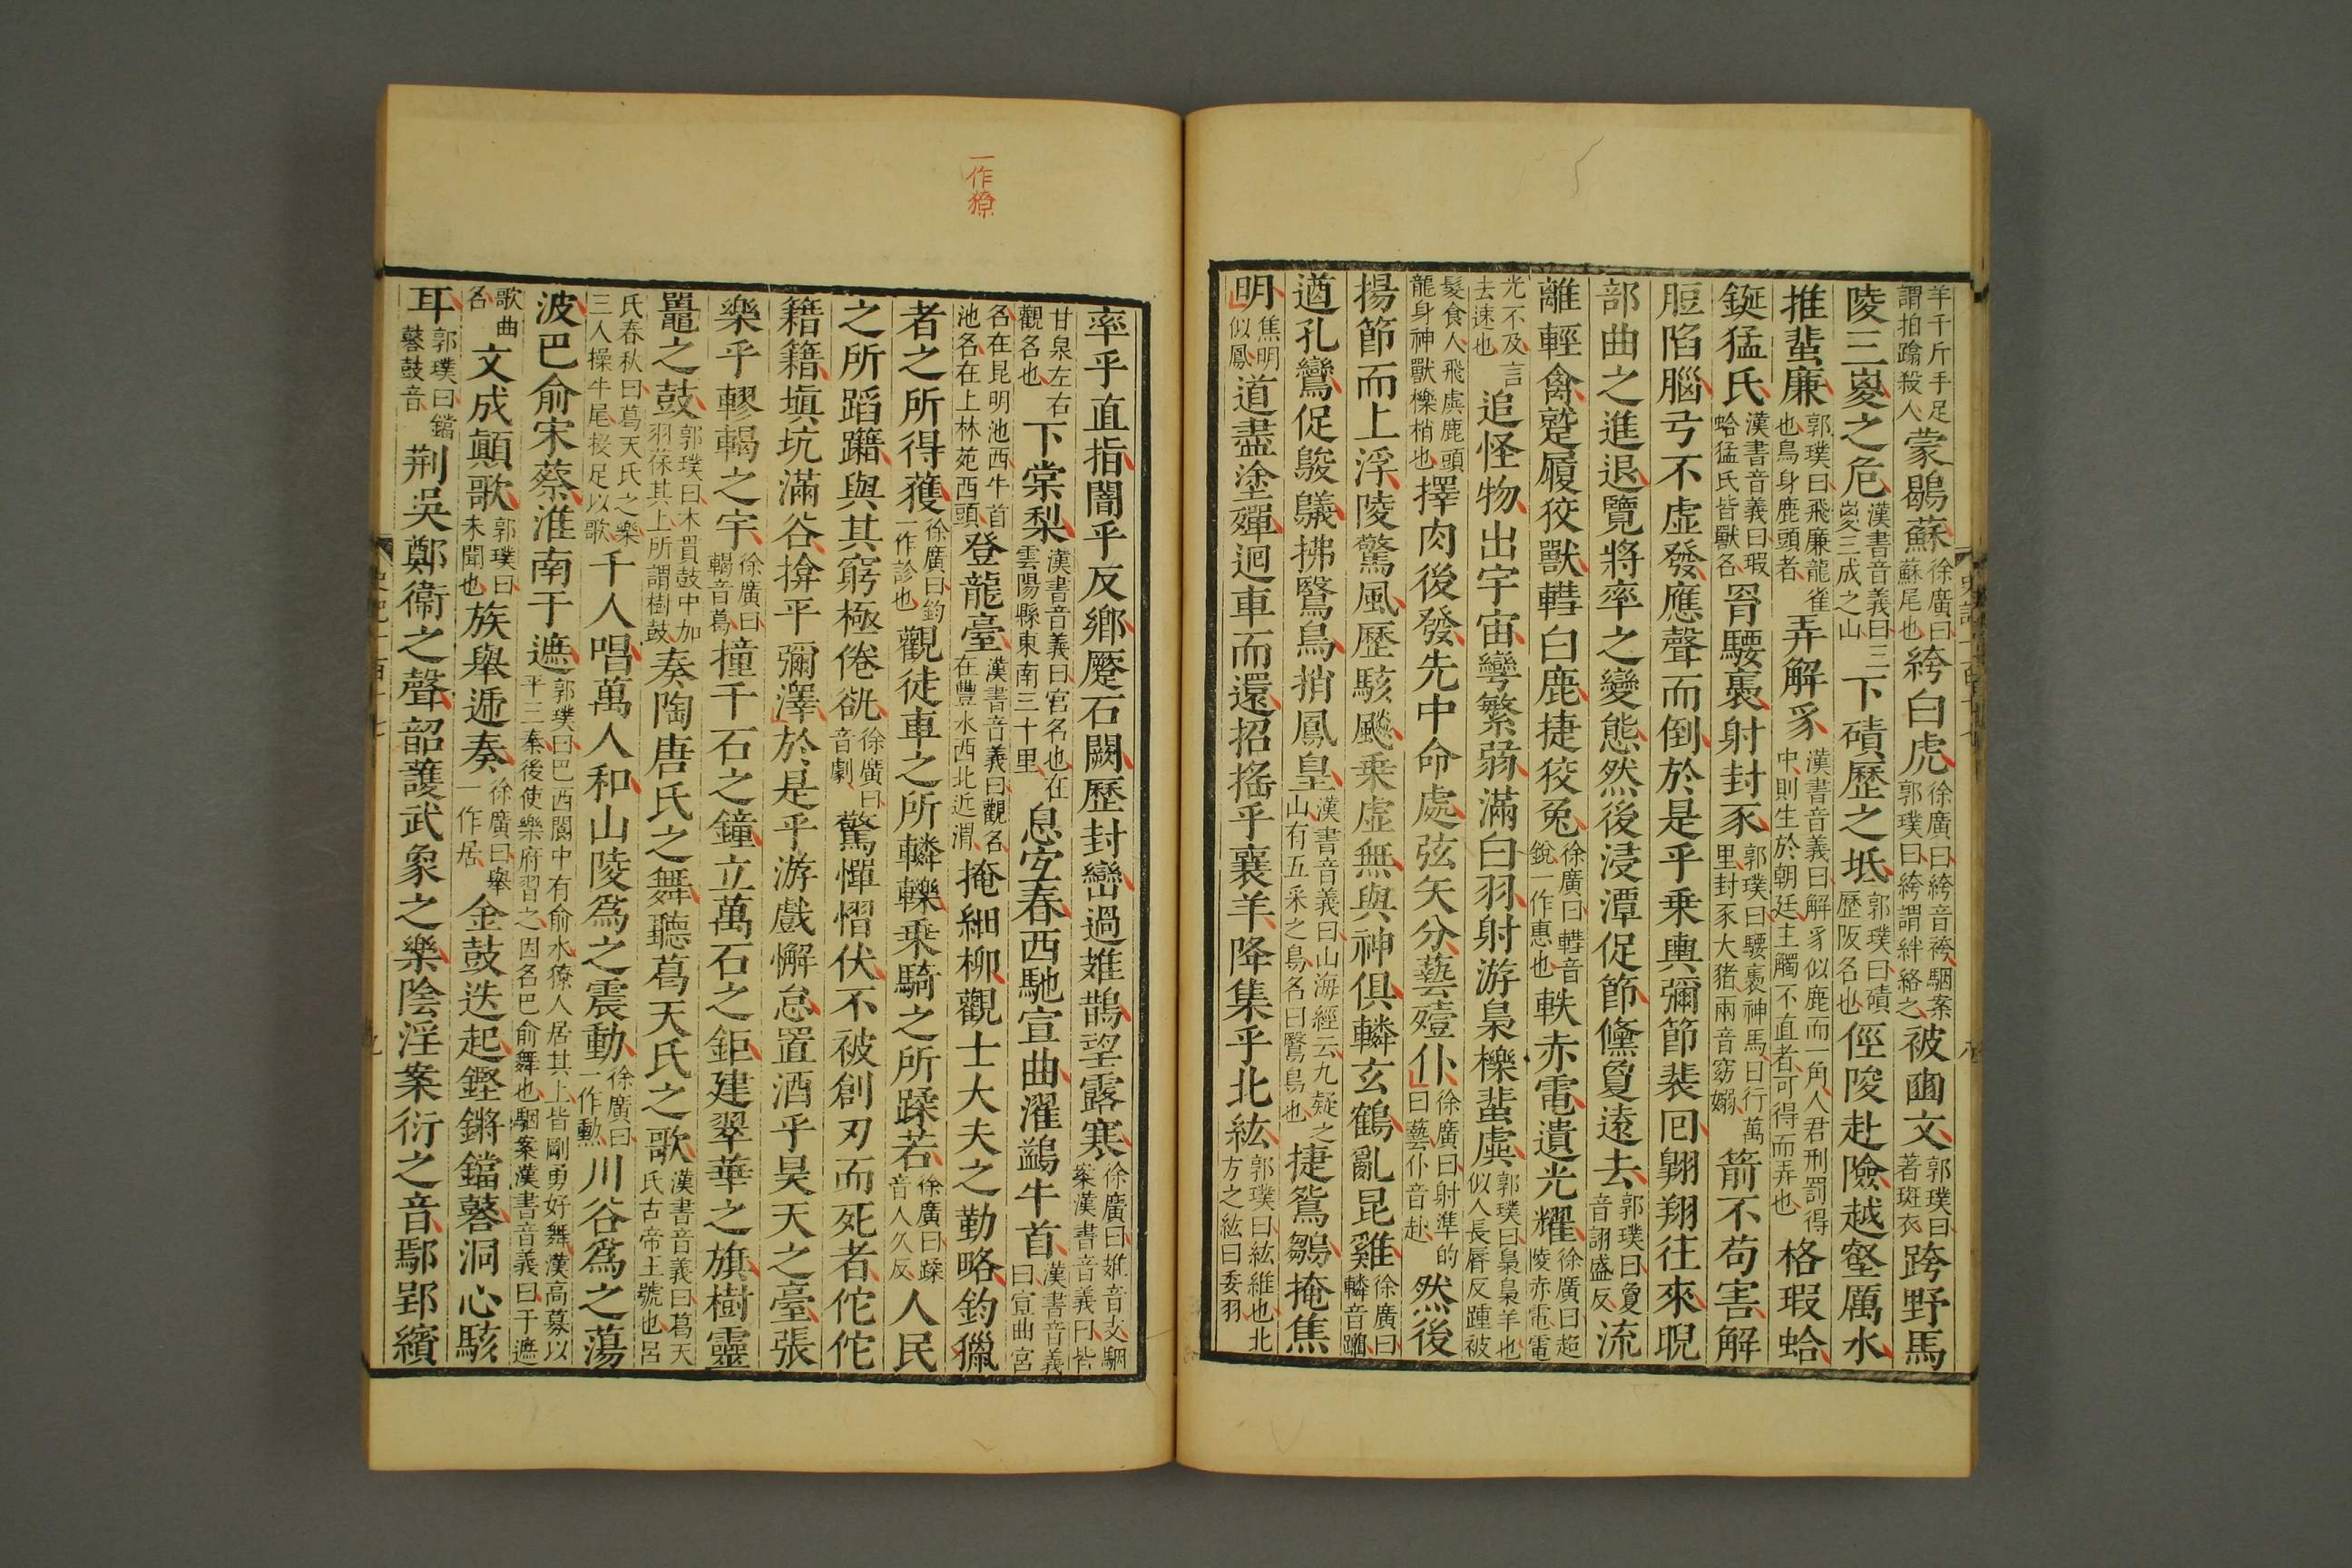 羊千斤手足謂拍蹹殺人蒙鶡蘇徐廣曰蘇尾也絝白虎徐廣曰絝音袴駰案郭璞曰絝謂絆絡之被豳文郭璞曰著斑衣跨野馬
陵三嵏之危漢書音義曰三嵏三成之山下磧歷之坻郭璞曰磧歷阪名也俓陖赴險越壑厲水
推蜚廉郭璞曰飛廉龍雀也鳥身鹿頭者弄解豸漢書音義曰解豸似鹿而一角人君刑罰得中則生於朝廷主觸不直者可得而弄也格瑕蛤
鋋猛氏漢書音義曰瑕蛤猛氏皆獸名罥騕褭射封豕郭璞曰騕褭神馬日行萬里封豕大猪兩音窈嫋箭不苟害解
脰陷腦弓不虛發應聲而倒於是乎乘輿彌節裴回翱翔往來睨
部曲之進退覽將率之變態然後浸潭促節儵夐遠去郭璞曰夐音詗盛反流
離輕禽蹵履狡獸轊白鹿捷狡兔徐廣曰轊音銳一作惠也軼赤電遺光耀徐廣曰超陵赤電電
光不及言去速也追怪物出宇宙彎繁弱滿白羽射游梟櫟蜚虡郭璞曰梟梟羊也似人長脣反踵被
髮食人飛虡鹿頭龍身神獸櫟梢也擇肉後發先中命處弦矢分藝殪仆徐廣曰射準的曰藝仆音赴然後
揚節而上浮陵驚風歷駭飈乘虛無與神俱轔玄鶴亂昆雞徐廣曰轔音躪
遒孔鸞促鵔鸃拂鷖鳥捎鳳皇漢書音義曰山海經云九疑之山有五采之鳥名曰鷖鳥也捷鴛鶵掩焦
明焦明似鳳道盡塗殫迴車而還招搖乎襄羊降集乎北紘郭璞曰紘維也北方之紘曰委羽
率乎直指闇乎反鄉蹷石闕歷封巒過䧿鵲望露寒徐廣曰䧿音支駰案漢書音義曰皆
甘泉左右觀名也下棠梨漢書音義曰宮名也在雲陽縣東南三十里息宜春西馳宣曲濯鷁牛首漢書音義曰宣曲宮
名在昆明池西牛首池名在上林苑西頭登龍臺漢書音義曰觀名在豐水西北近渭掩細柳觀士大夫之勤略鈞獵
者之所得獲徐廣曰鈞一作診也觀徒車之所轔轢乘騎之所蹂若徐廣曰蹂音人久反人民
之所蹈躤與其窮極倦谻徐廣曰音劇驚憚慴伏不被創刃而死者佗佗
籍籍塡坑滿谷揜平彌澤於是乎游戲懈怠置酒乎昊天之臺張
樂乎轇輵之宇徐廣曰輵音葛撞千石之鐘立萬石之鉅建翠華之旗樹靈
鼉之鼓郭璞曰木貫鼓中加羽葆其上所謂樹鼓奏陶唐氏之舞聽葛天氏之歌漢書音義曰葛天氏古帝王號也呂
氏春秋曰葛天氏之樂三人操牛尾投足以歌千人唱萬人和山陵爲之震動徐廣曰一作勲川谷爲之蕩
波巴俞宋蔡淮南于遮郭璞曰巴西閬中有俞水獠人居其上皆剛勇好舞漢高募以平三秦後使樂府習之因名巴俞舞也駰案漢書音義曰于遮
歌曲名文成顚歌郭璞曰未聞也族舉遞奏徐廣曰舉一作居金鼓迭起鏗鏘鐺鼛洞心駭
耳郭璞曰鐺鼛鼓音荆吳鄭衞之聲韶護武象之樂陰淫案衍之音鄢郢繽
一作獠
史記一百十七
八
九